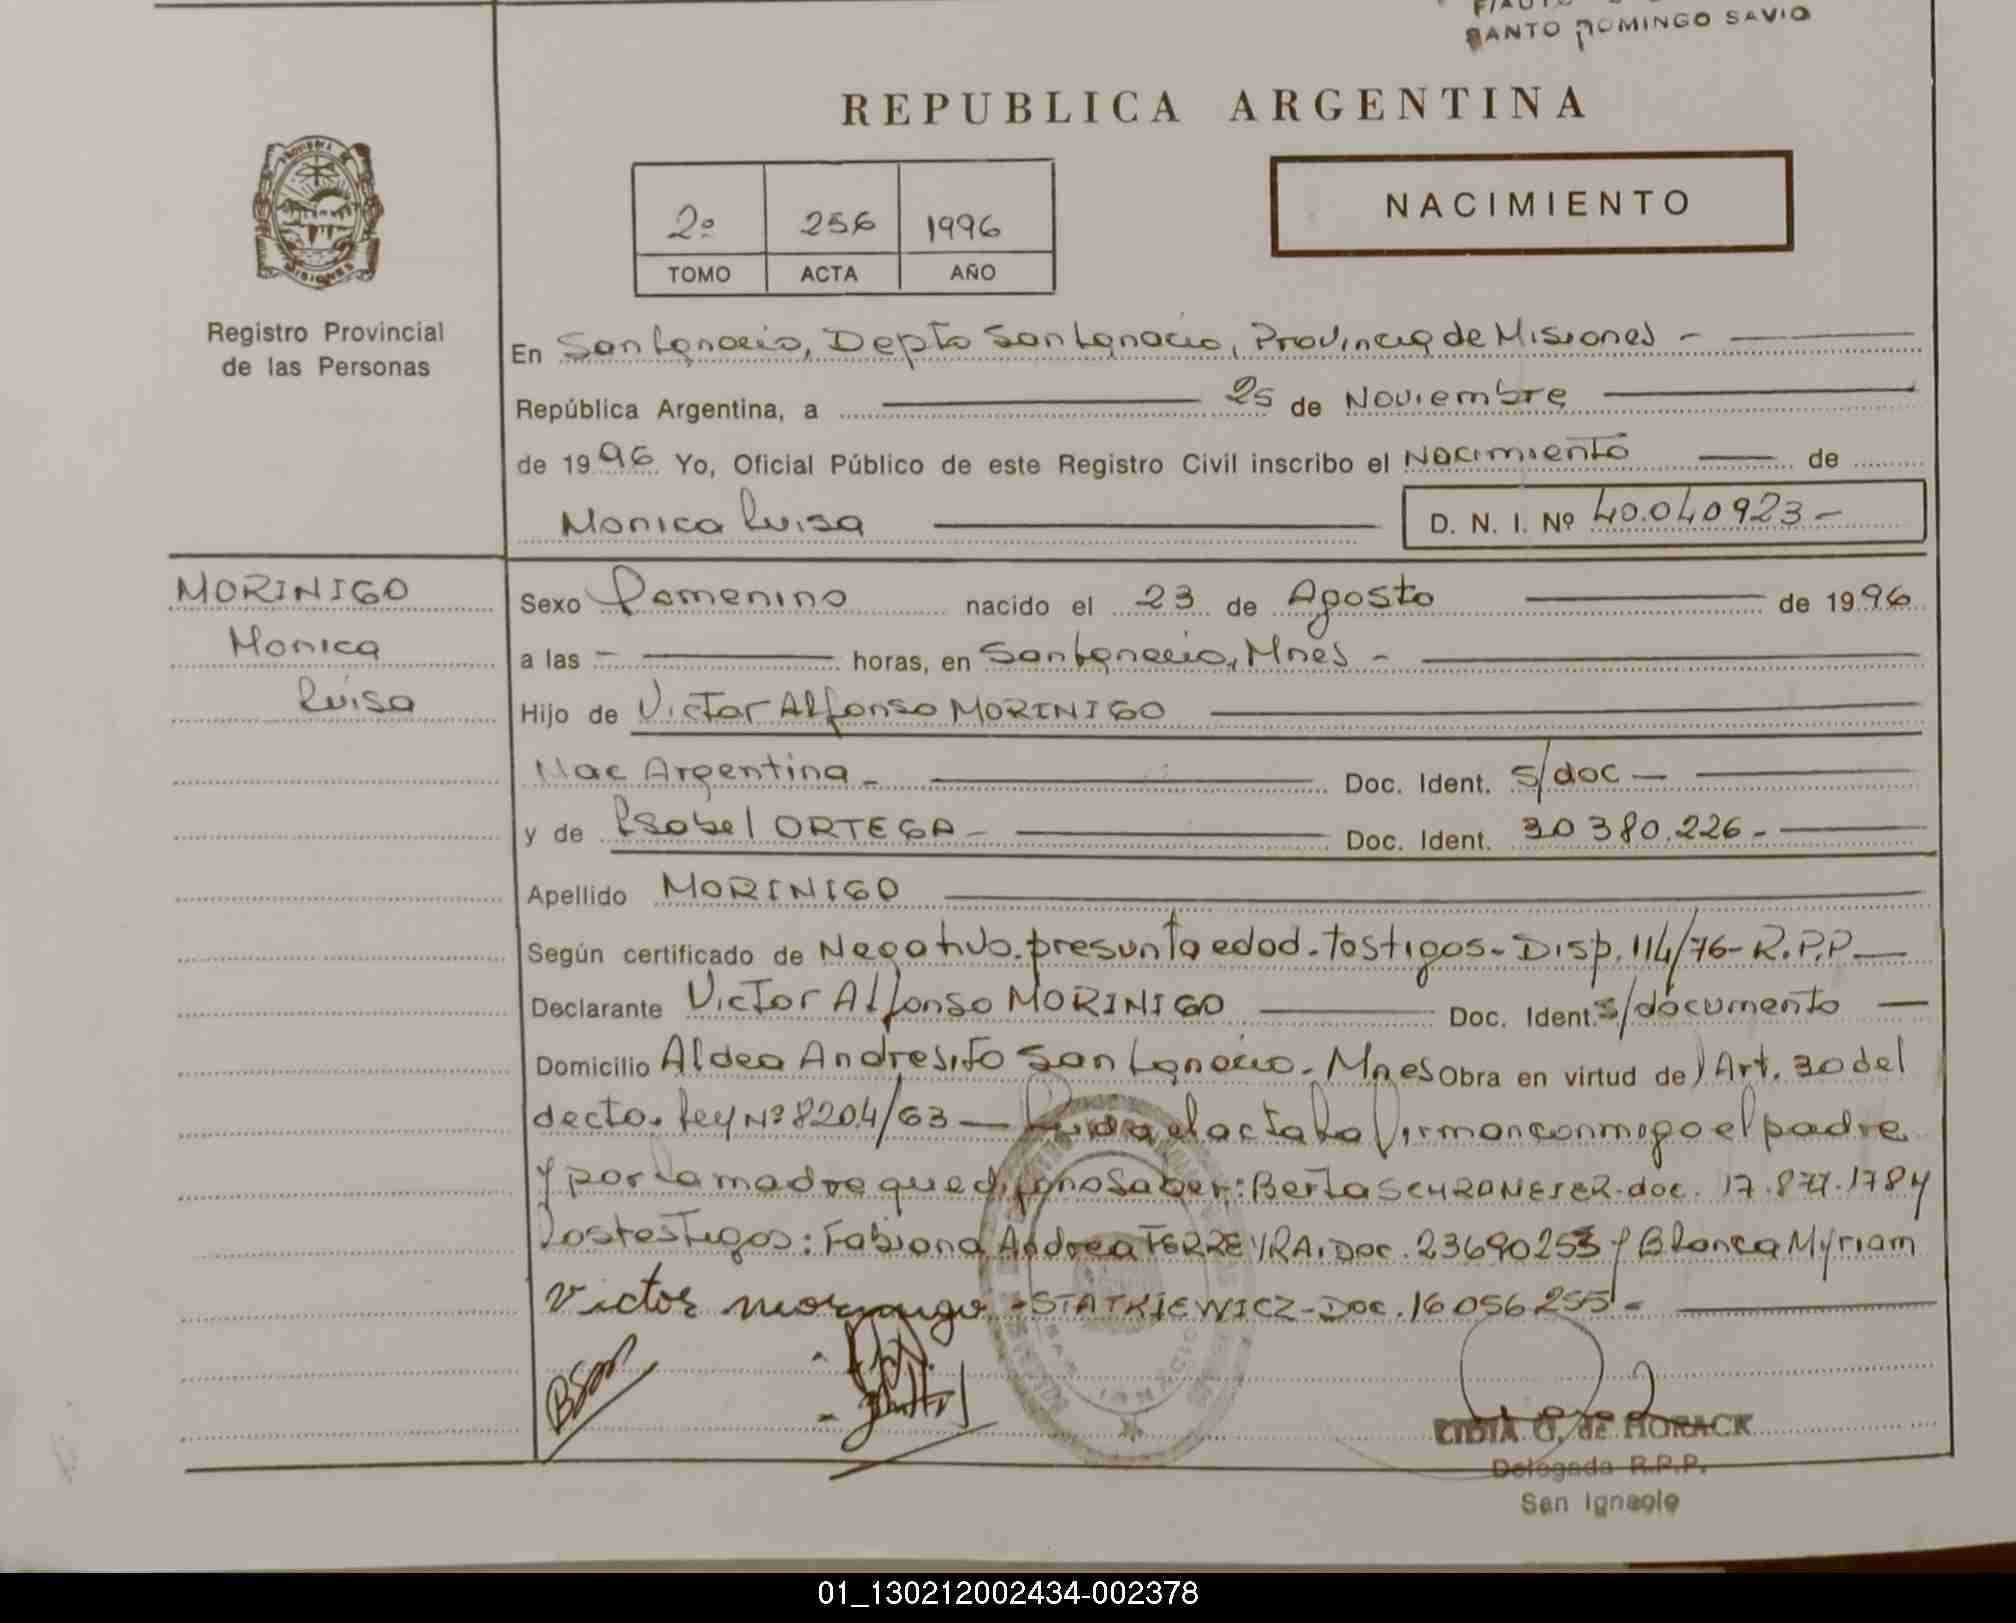 SANTO DOMINGO SAVIO
REPUBLICA ARGENTINA
2º 256 1996
TOMO ACTA AÑO
NACIMIENTO
PROVINCIA DE
MISIONES
Registro Provincial
de las Personas
En San Ignacio, Depto San Ignacio, Provincia de Misiones -
República Argentina, a 25 de Noviembre
de 1996 Yo, Oficial Público de este Registro Civil inscribo el Nacimiento de
Monica Luisa D. N. I. Nº 40.040923-
MORINIGO
Monica
Luisa
Sexo Femenino nacido el 23 de Agosto de 1996
a las - horas, en San Ignacio, Mnes -
Hijo de Victor Alfonso MORINIGO
Nac Argentina - Doc. Ident. S/doc -
y de Isabel ORTEGA - Doc. Ident. 30380.226-
Apellido MORINIGO
Según certificado de Negativo. presunta edad. testigos- Disp. 114/76- R.P.P
Declarante Victor Alfonso MORINIGO Doc. Ident. s/documento
Domicilio Aldea Andresito San Ignacio. Mnes Obra en virtud de Art. 30 del
decto. Ley Nº 8204/63 - Leida el acta la firman conmigo el padre
y por la madre que dijo no saber: Berta doc. 17.877.178 y
Los testigos: Fabiana Andrea FERREYRA. Doc. 23690253 y Blanca Myriam
Victor morinigo - STATKIEWICZ - Doc. 16056255 -
G. de HORACK
Delegada R.P.P.
San Ignacio
01_130212002434-002378